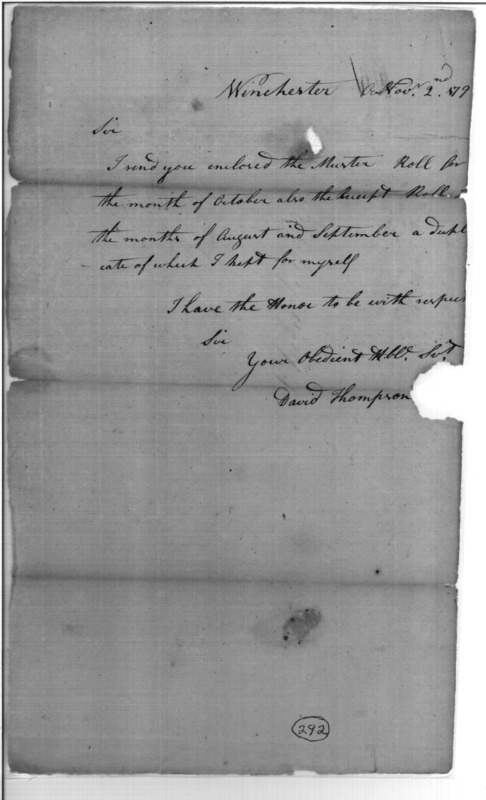 Winchester Nov. 2nd. 179
Sir
I send you enclosed the Muster Roll for
the month of October also the receipt Roll
the months of August and September a dupl
- icate of which I kept for myself
I have the Honor to be with respec
Sir
Your Obedient Hble. Svt
David Thompson
292